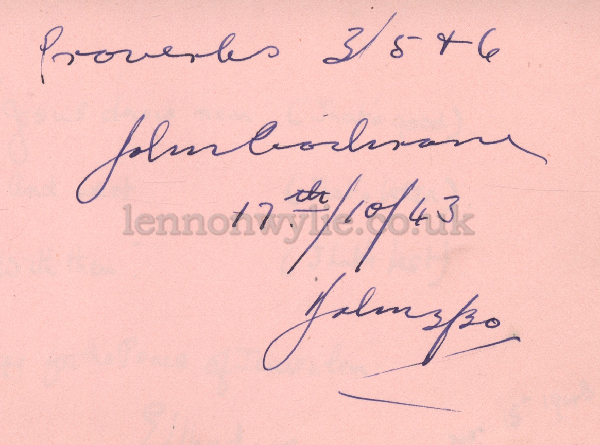 Proverbs 3/5 & 6
John Cochrane
17th/10/43
lennonwylie.co.uk
John 3/30